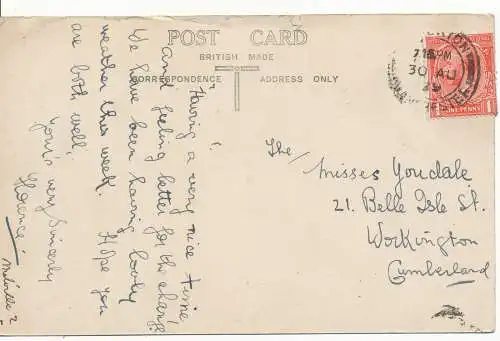 POST CARD
BRITISH MADE
CORRESPONDENCE
ADDRESS ONLY
"Having a very nice time"
and feeling better for the change
We have been having lovely
weather this week. Hope you
are both well.
Yours very Sincerely
Florence
The Misses Youdale
21. Belle Isle St.
Workington
Cumberland
7 15 PM
30 AU
29
1 ONE PENNY 1